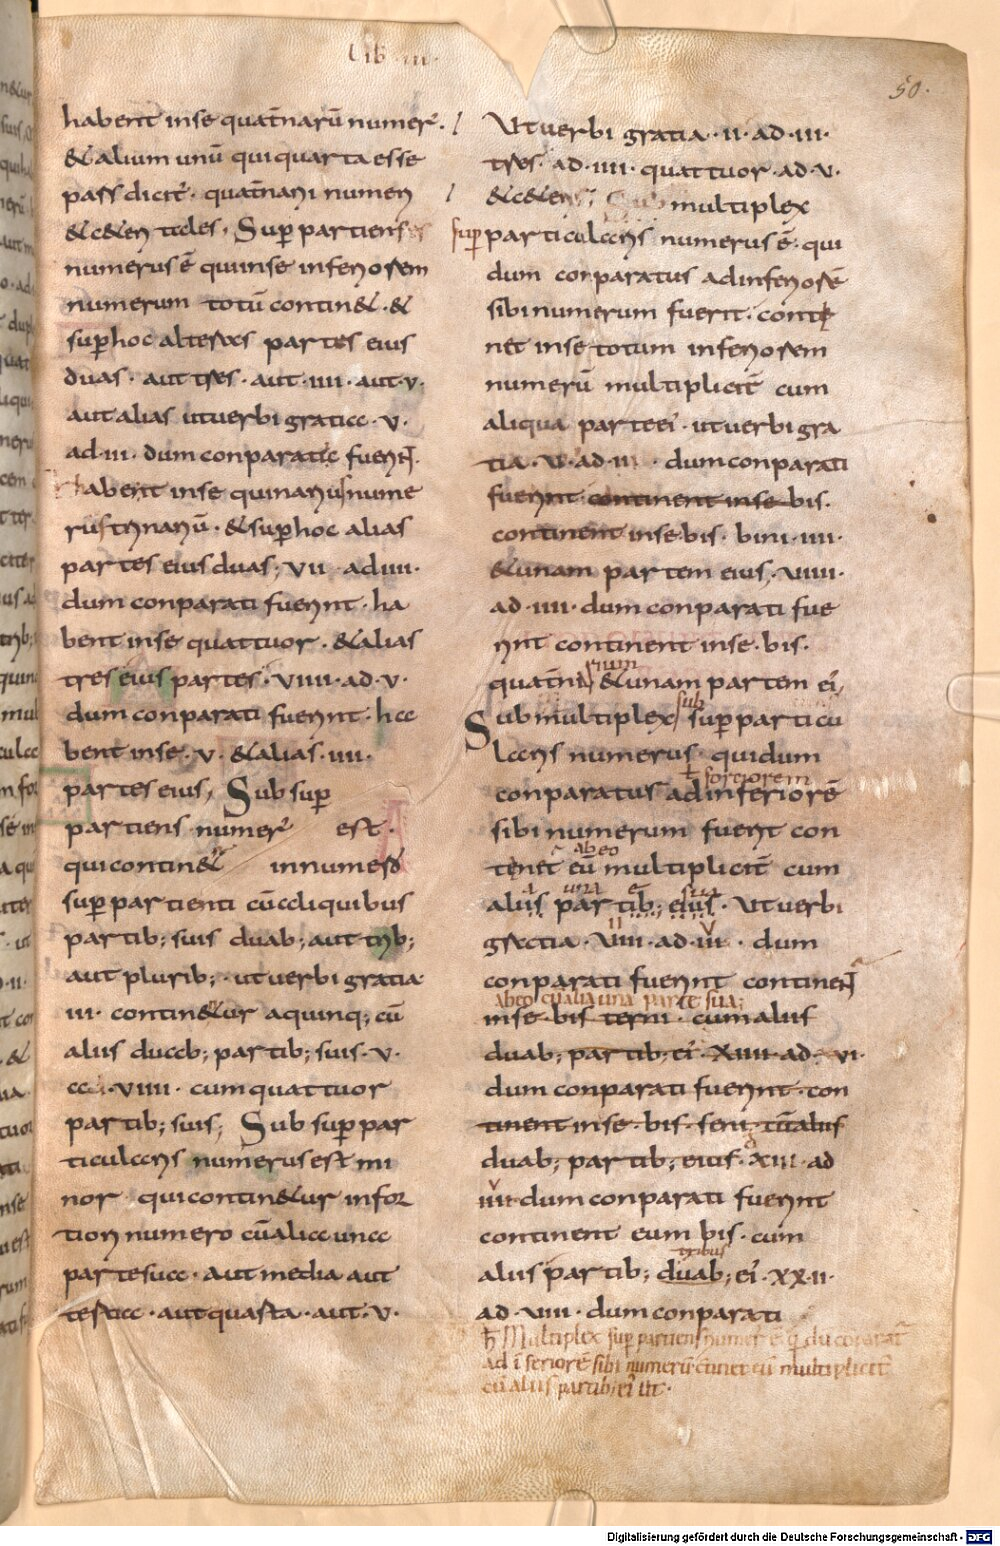 Lib · III ·
50.
habent inse quat̄narū numer̄.
& alium unū qui quarta esse
pass dicit̄. quat̄narii numeri
& c&eri tales, Sup partiens
numerus ē qui inse inferiorem
numerum totū contin& · &
sup hoc alteras partes eius
duas · aut tres · aut · IIII · aut · V ·
aut alias ut uerbi gratia · V ·
ad · III · dum conparati fuerint.
habent inse quinarius nume
rus trinariū · & sup hoc alias
partes eius duas; VII · ad IIII ·
dum conparati fuerint · ha
bent inse quattuor · & alias
tres eius partes · VIIII · ad · V ·
dum conparati fuerint · ha
bent inse · V · & alias · IIII ·
partes eius, Sub sup
partiens numer̄ est ·
qui contin& in numero
sup partienti cū aliquibus
partib; suis duab; aut trib;
aut plurib; · ut uerbi gratia ·
III · contin&ur a quinq; cū
aliis duab; partib; suis · V ·
a · VIIII · cum quattuor
partib; suis; Sub sup par
ticularis numerus est mi
nor qui contin&ur in for
tiori numero cū alia una
parte sua · aut media aut
tertia · aut quarta · aut · V ·
Ut uerbi gratia · II · ad · III ·
tres · ad · IIII · quattuor · ad · V ·
& c&eri; Sub multiplex
sup particularis numerus ē · qui
dum conparatus ad inferiorē
sibi numerum fuerit · conti
net inse totum inferiorem
numerū multiplicit̄ cum
aliqua parte ei · ut uerbi gra
tia · V · ad · II · dum conparati
fuerint continent inse bis ·
continent inse · bis · bini · IIII ·
& unam partem eius, VIIII ·
ad · IIII · dum conparati fue
rint continent inse · bis ·
rium
quat̄na & unam partem ei,
sub
Sub multiplex sup particu
laris numerus qui dum
ł forciorem
conparatus ad inferiorē
sibi numerum fuerit con
abeo
tenet eū multiplicit̄ cum
a una e sua
aliis partib; eius · Ut uerbi
II V
gratia · VIIII · ad · III · dum
conparati fuerint continent
abeo cū alia una parte sua;
inse bis terni · cum aliis
duab; partib; ei · XIIII · ad · VI ·
dum conparati fuerint · con
tinent inse · bis · seni · cū aliis
duab; partib; eius · XIII · ad
V
IIII · dum conparati fuerint
continent eum bis · cum
tribus
aliis partib; duab; ei · XXII ·
ad · VIIII · dum conparati
h̄ Multiplex sup partiens numer ē q dū conparat̄
ad īferiorē sibi numerū cū multiplicit̄
cū aliis partib; ei ut ·
Digitalisierung gefördert durch die Deutsche Forschungsgemeinschaft - DFG